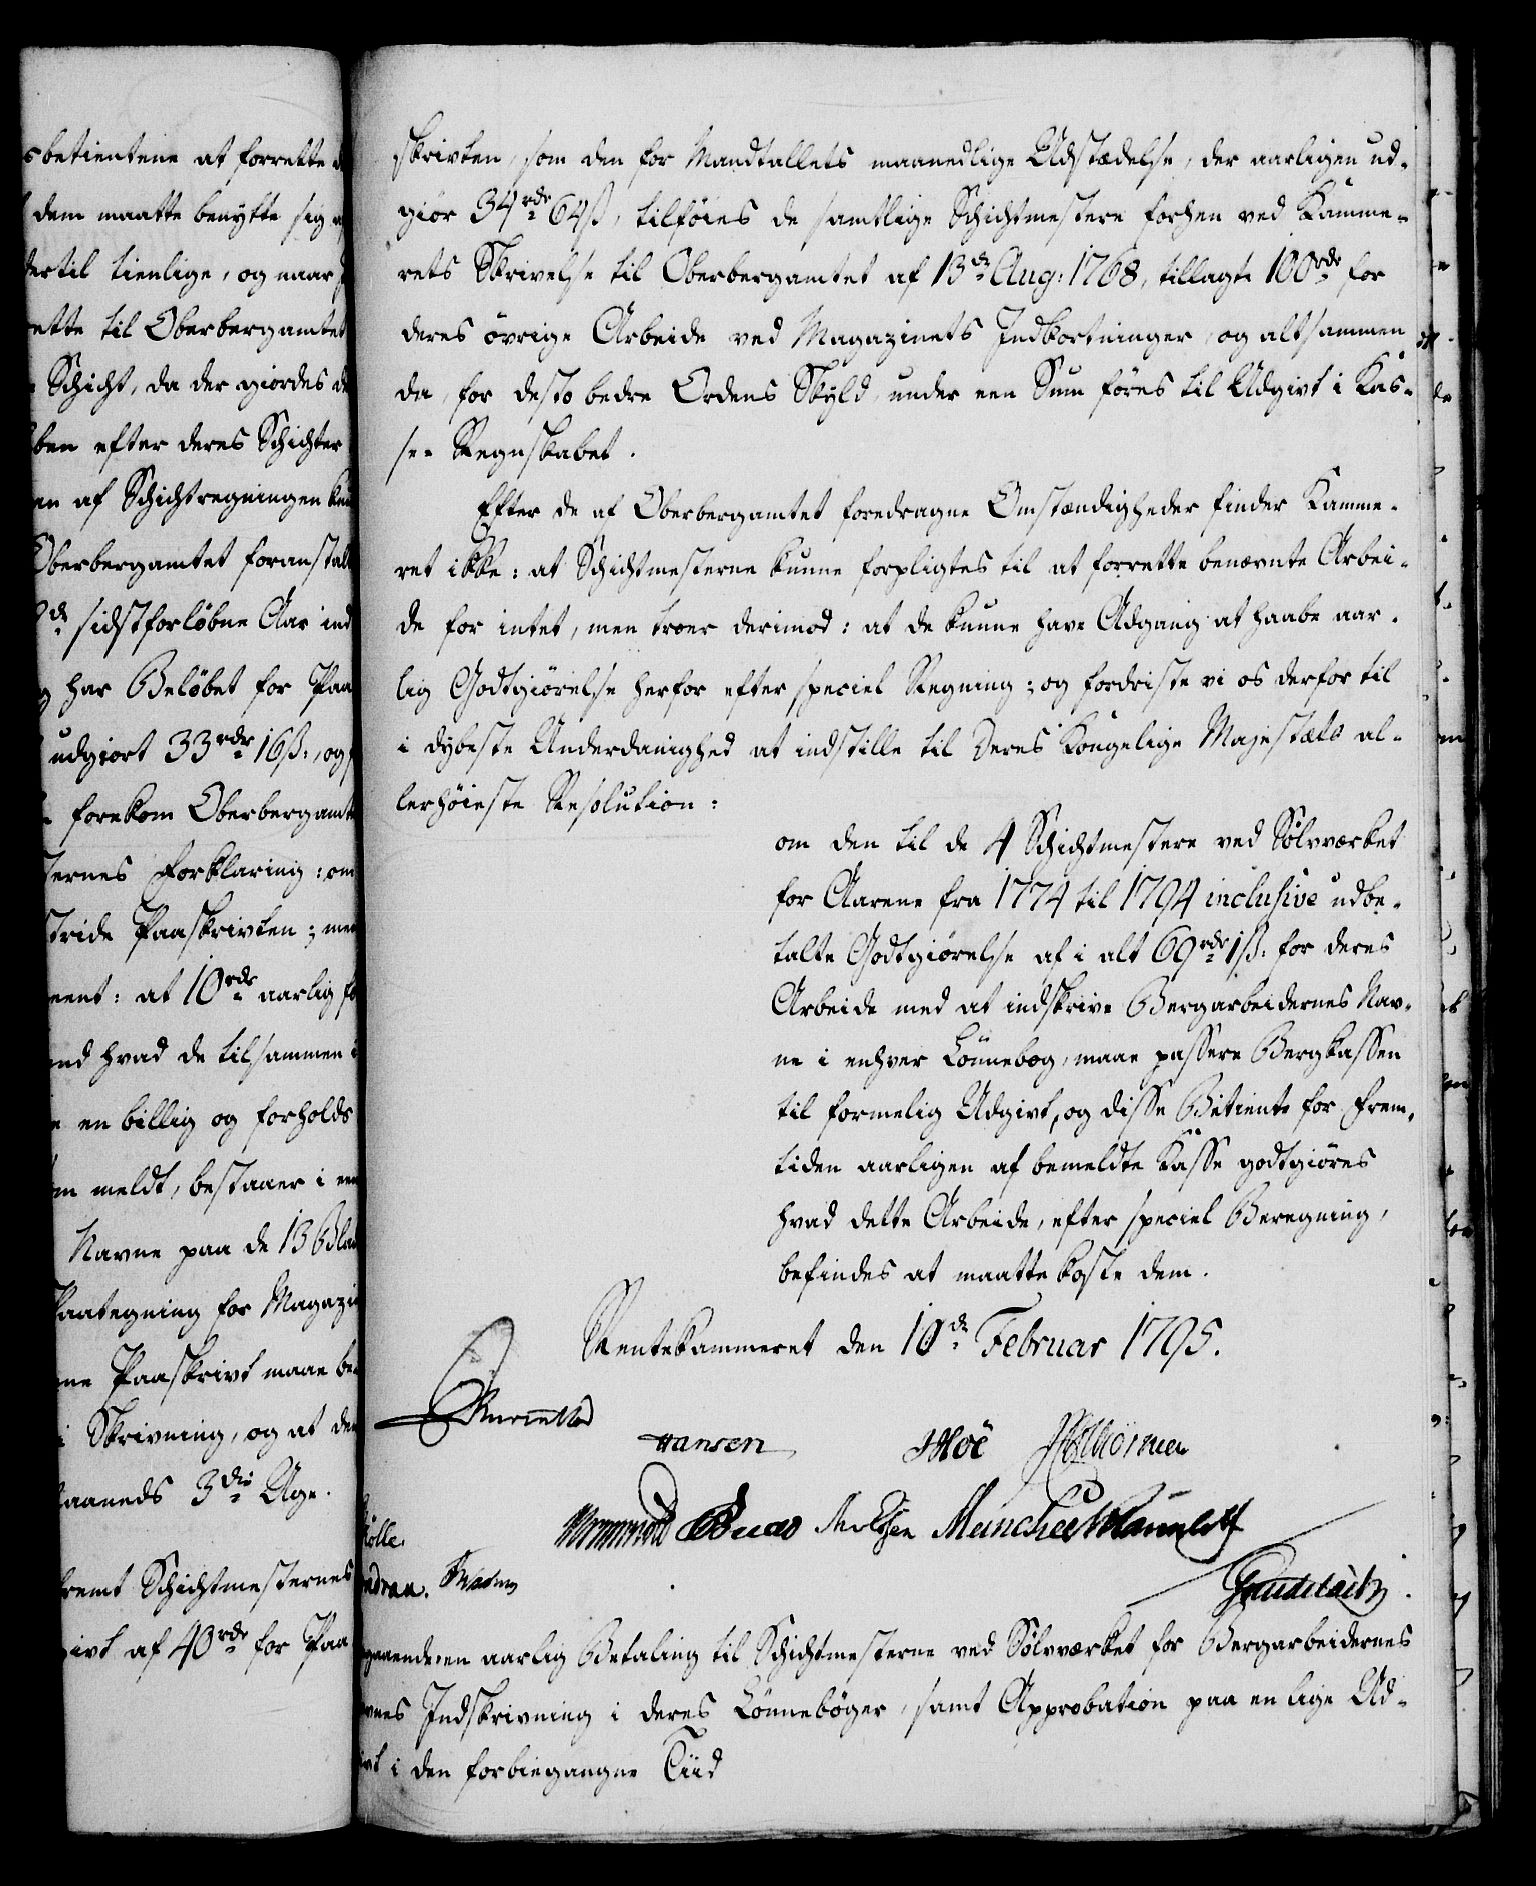 sbetientene at forrette
dem maatte benytte sig
dertil tienlige, og naar
rette til Oberbergamtet
Schicht, da der giordes
ben efter deres Schichter
en af Schichtregningen
Oberbergamtet foranstal
sidstforløbne Aar ind
har Beløbet for Paa
udgiort 33 rdr 16 ß:, og
forekom Oberbergamte
ternes Forklaring: om
stride Paaskrivten; men
ment: at 10 rdr aarlig
end hvad de tilsammen
en billig og forholds
om meldt, bestaaer i
Navne paa de 13 Bla
Paategning for Magazi
ne Paaskrivt maae be
i Skrivning, og at de
Maaneds 3die Uge.
fremt Schichtmesternes
givt af 40 rdr for Paa
skrivten, som den for Mandtallets maanedlige Udstædelse, der aarligen ud-
giør 34 rdr 64 ß, tilføies de samtlige Schichtmestere forhen ved Kamme-
rets Skrivelse til Oberbergamtet af 13de Aug: 1768, tillagte 100 rdr for
deres øvrige Arbeide ved Magazinets Indkortninger, og altsammen
da, for desto bedre Ordens Skyld, under een Sum føres til Udgivt i Kas-
se- Regnskabet.
Efter de af Oberbergamtet foredragne Omstændigheder finder Kamme-
ret ikke: at Schichtmesterne kunne forpligtes til at forrette benævnte Arbei-
de for intet, men troer derimod: at de kunne have Adgang at haabe aar-
lig Godtgiørelse herfor efter speciel Regning; og fordriste vi os derfor til
i dybeste Underdanighed at indstille til Deres Kongelige Majestæts al-
lerhøieste Resolution:
om den til de 4 Schichtmestere ved Sølvværket
for Aarene fra 1774 til 1794 inclusive udbe-
talte Godtgiørelse af i alt 69 rdr 1 ß: for deres
Arbeide med at indskrive Bergarbeidernes Nav-
ne i enhver Lønnebog, maae passere Bergkassen
til formelig Udgivt, og disse Betiente for Frem-
tiden aarligen af bemeldte Kasse godtgiøres
hvad dette Arbeide, efter speciel Beregning,
befindes at maatte koste dem.
Rentekammeret den 10de Februar 1795.
Reventlow
Hansen
Moe
Wormskiold
Knudetoitz
gaaende: en aarlig Betaling til Schichtmesterne ved Sølvværket for Bergarbeidernes
vnes Indskrivning i deres Lønnebøger, samt Approbation paa en lige Ud-
ivt i den forbigangne Tiid